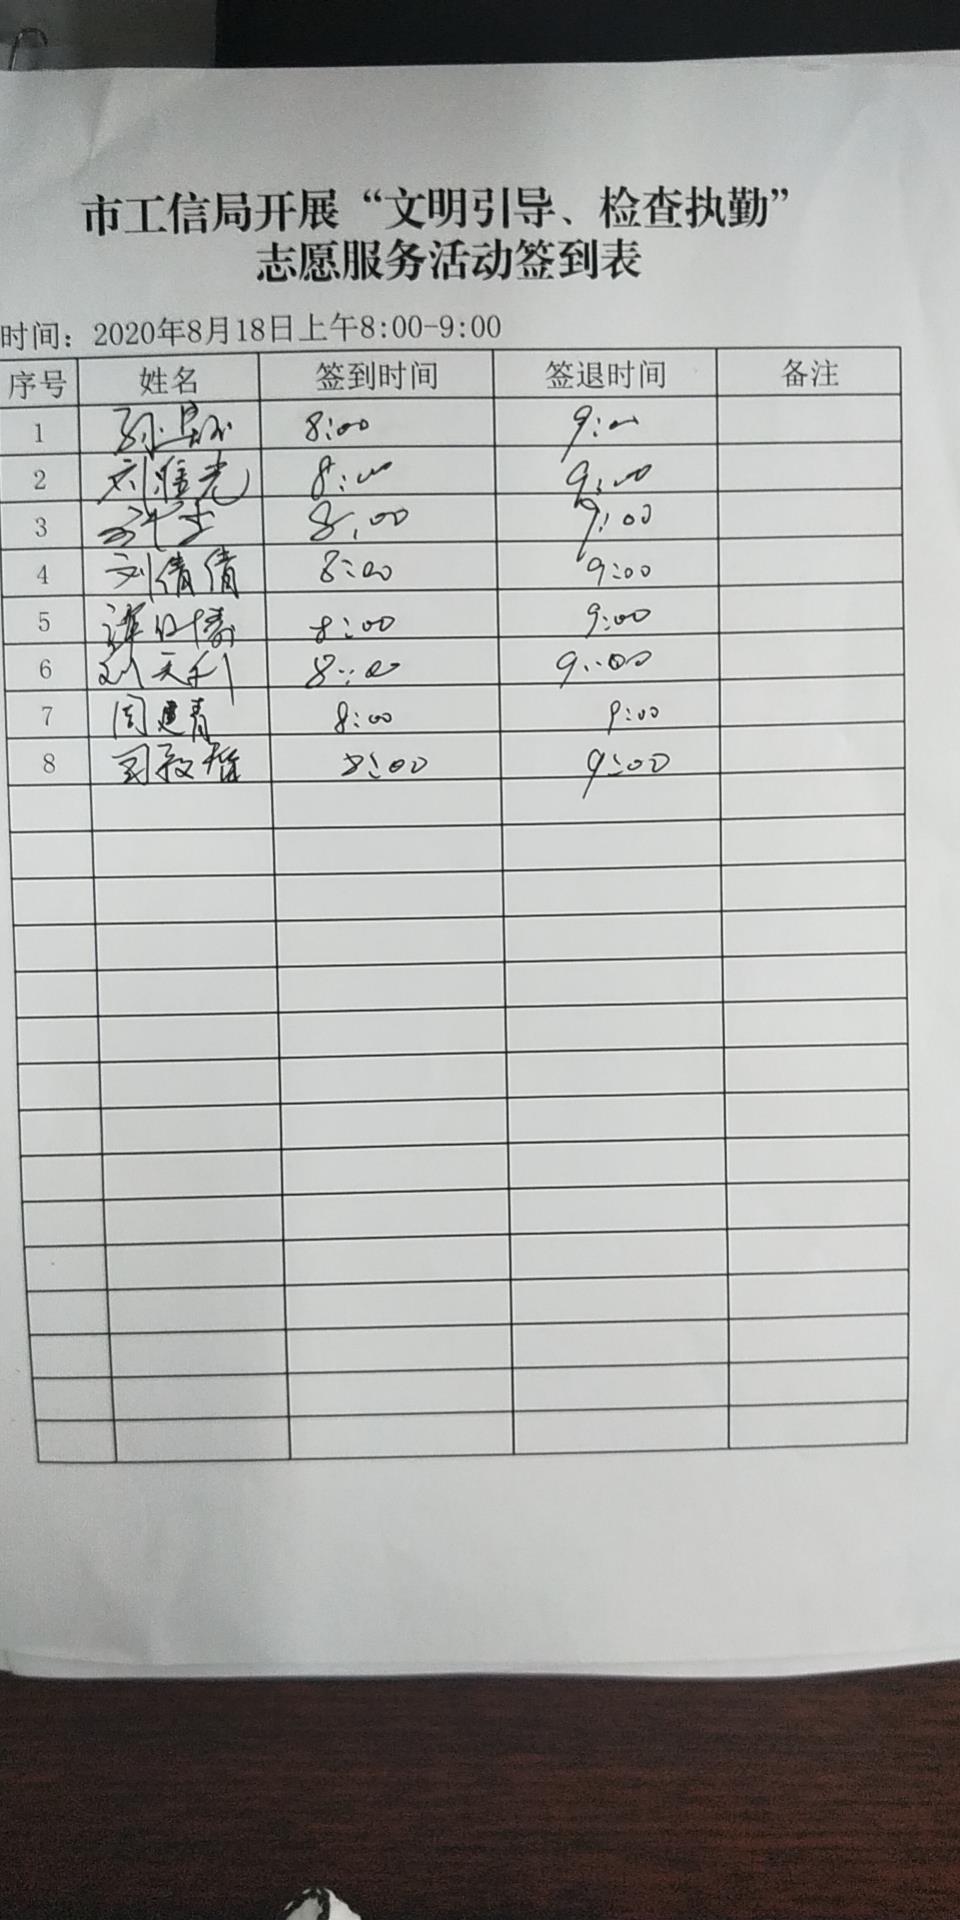 市工信局开展“文明引导、检查执勤”
志愿服务活动签到表
时间：2020年8月18日上午8:00-9:00
序号 姓名 签到时间 签退时间 备注
1 8:00 9:00
2 刘雅光 8:00 9:00
3 8:00 9:00
4 刘倩倩 8:00 9:00
5 8:00 9:00
6 刘天利 8:00 9:00
7 周建青 8:00 9:00
8 8:00 9:00